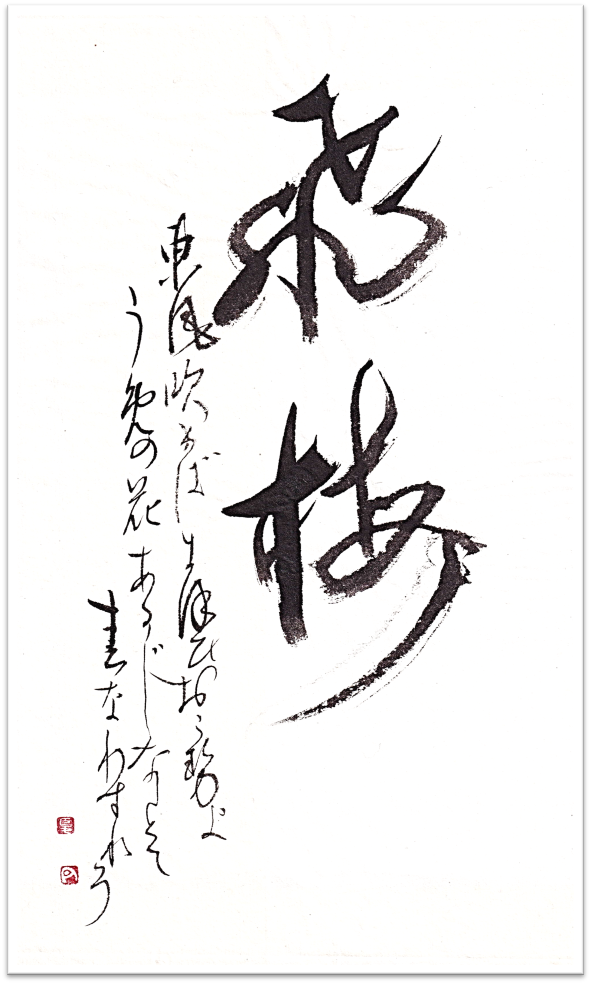 飛梅
東風吹かばにほひおこせよ
うめの花あるじなしとて
春なわすれそ